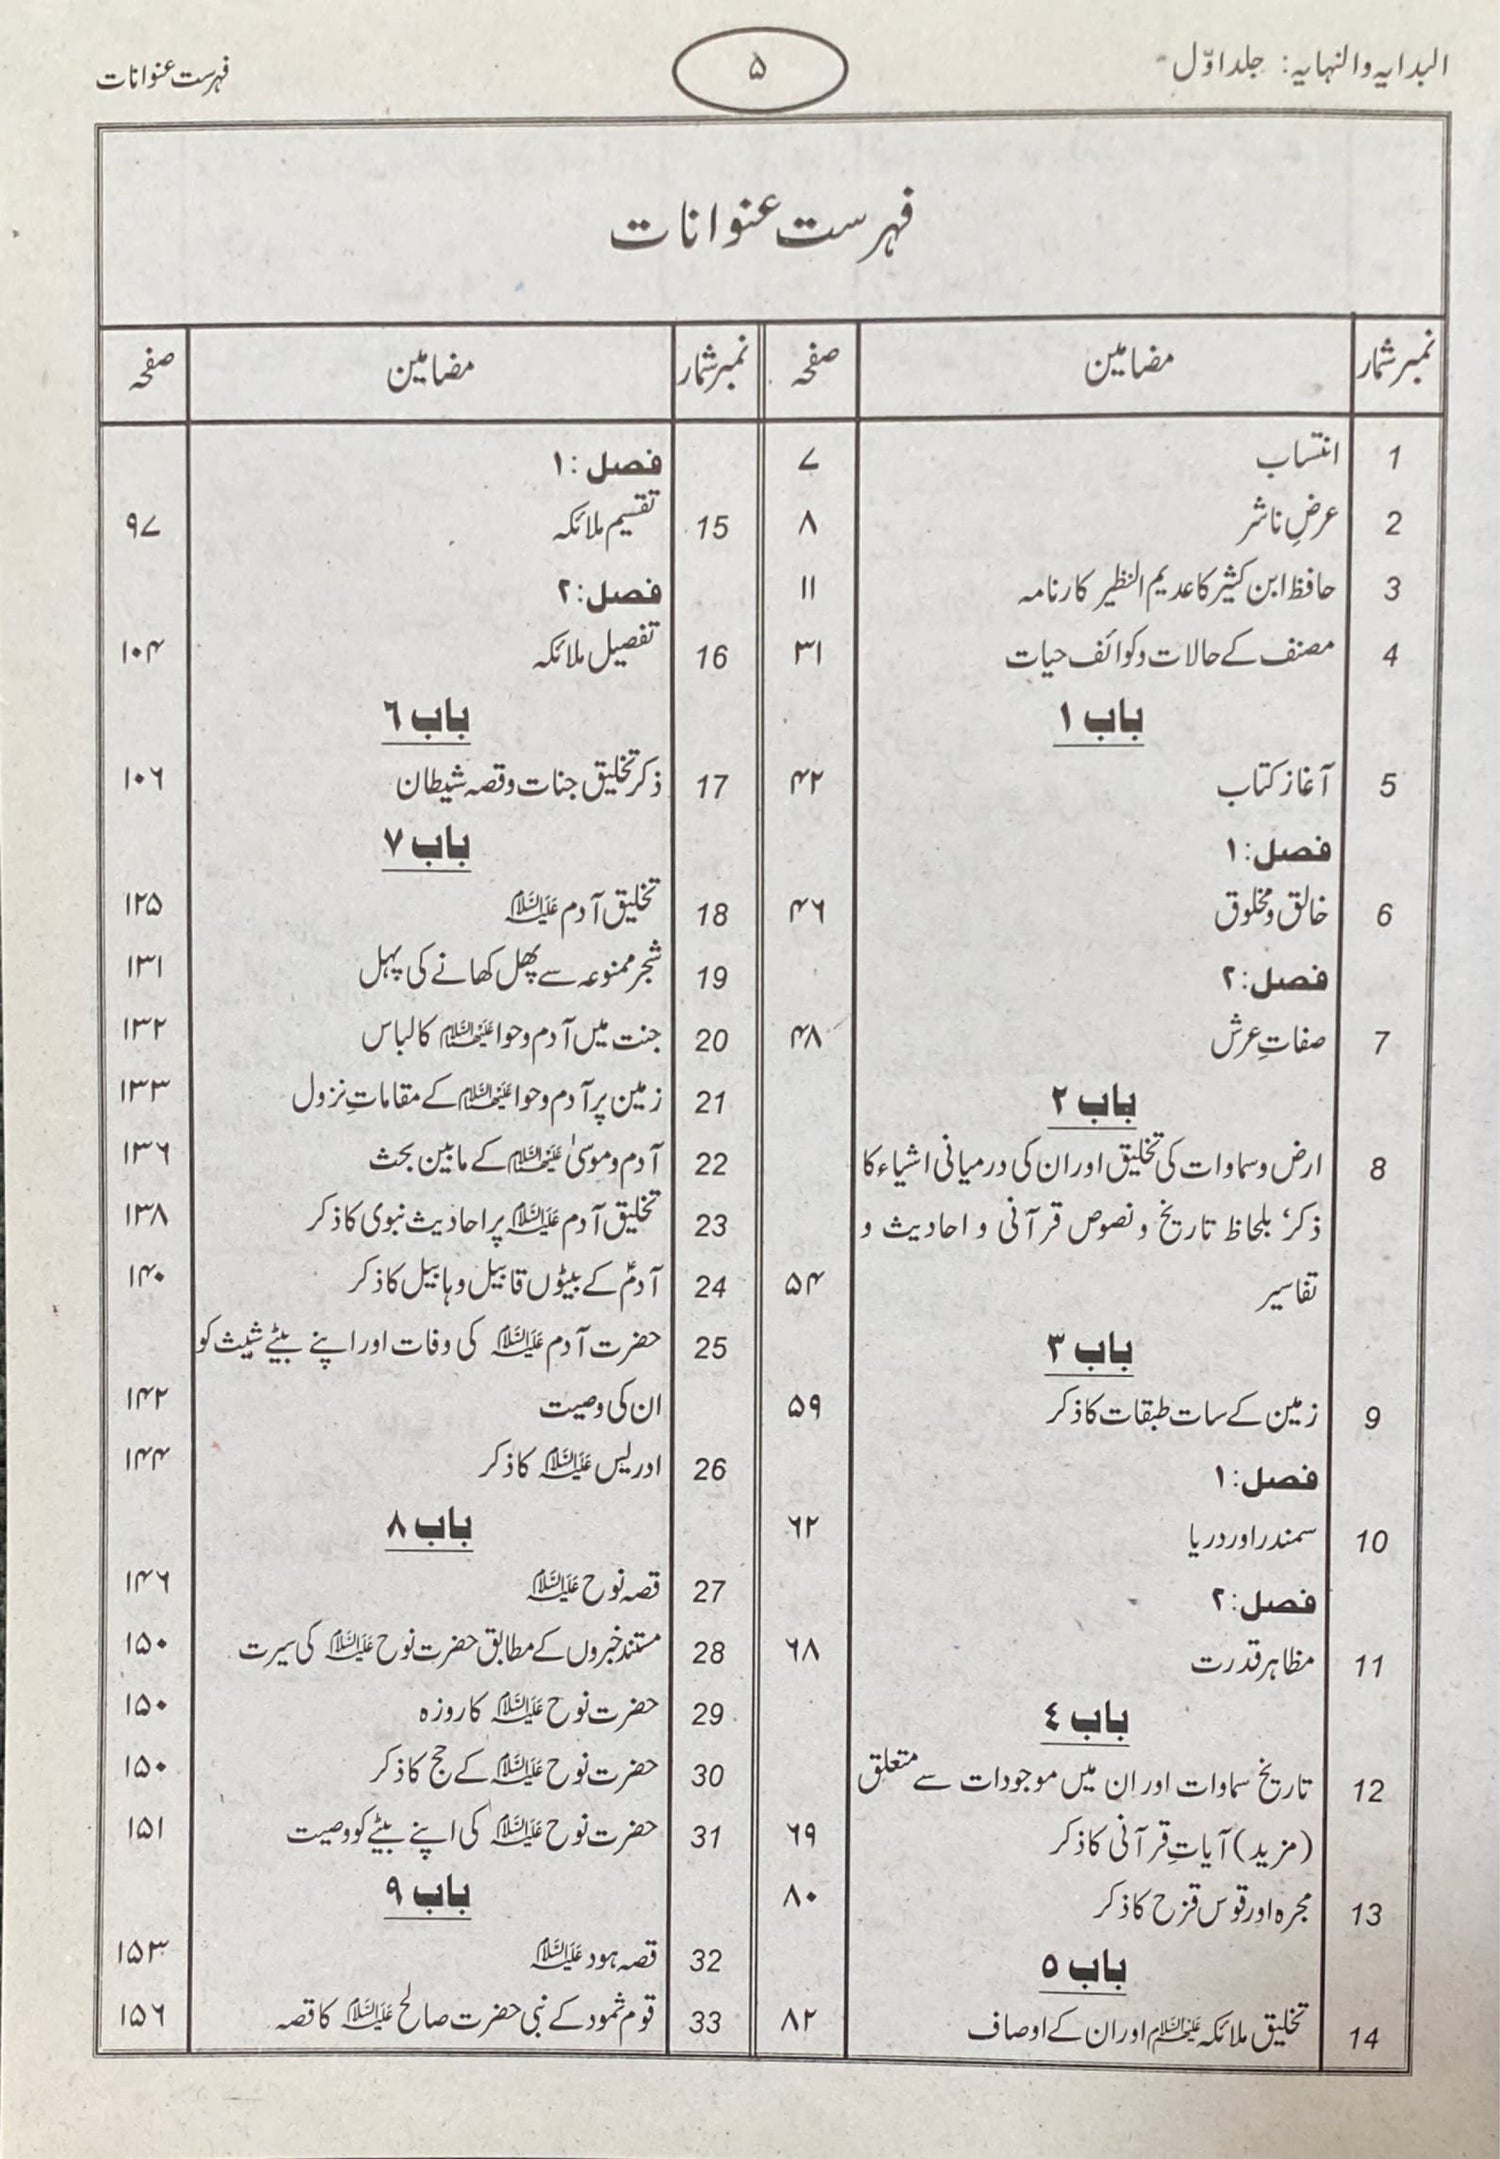 البدایہ والنہایہ: جلد اوّل
۵
فہرست عنوانات
فہرست عنوانات
نمبر شمار مضامین صفحہ
1 انتساب ۷
2 عرضِ ناشر ۸
3 حافظ ابن کثیر کا عدیم النظیر کارنامہ ۱۱
4 مصنف کے حالات و کوائف حیات ۳۱
باب ۱
5 آغاز کتاب ۴۲
فصل: ۱
6 خالق و مخلوق ۴۶
فصل: ۲
7 صفاتِ عرش ۴۸
باب ۲
8 ارض و سماوات کی تخلیق اور ان کی درمیانی اشیاء کا
ذکر، بلحاظ تاریخ و نصوص قرآنی و احادیث و
تفاسیر ۵۴
باب ۳
9 زمین کے سات طبقات کا ذکر ۵۹
فصل: ۱
10 سمندر اور دریا ۶۲
فصل: ۲
11 مظاہر قدرت ۶۸
باب ٤
12 تاریخ سماوات اور ان میں موجودات سے متعلق
(مزید) آیاتِ قرآنی کا ذکر ۶۹
13 مجرہ اور قوس قزح کا ذکر ۸۰
باب ٥
14 تخلیق ملائکہ علیہم السلام اور ان کے اوصاف ۸۲
نمبر شمار مضامین صفحہ
فصل: ۱
15 تقسیم ملائکہ ۹۷
فصل: ۲
16 تفصیل ملائکہ ۱۰۴
باب ٦
17 ذکر تخلیق جنات و قصہ شیطان ۱۰۶
باب ۷
18 تخلیق آدم علیہ السلام ۱۲۵
19 شجر ممنوعہ سے پھل کھانے کی پہل ۱۳۱
20 جنت میں آدم و حوا علیہما السلام کا لباس ۱۳۲
21 زمین پر آدم و حوا علیہما السلام کے مقاماتِ نزول ۱۳۳
22 آدم و موسیٰ علیہما السلام کے مابین بحث ۱۳۶
23 تخلیق آدم علیہ السلام پر احادیث نبوی کا ذکر ۱۳۸
24 آدمؑ کے بیٹوں قابیل و ہابیل کا ذکر ۱۴۰
25 حضرت آدم علیہ السلام کی وفات اور اپنے بیٹے شیث کو
ان کی وصیت ۱۴۲
26 ادریس علیہ السلام کا ذکر ۱۴۴
باب ۸
27 قصہ نوح علیہ السلام ۱۴۶
28 مستند خبروں کے مطابق حضرت نوح علیہ السلام کی سیرت ۱۵۰
29 حضرت نوح علیہ السلام کا روزہ ۱۵۰
30 حضرت نوح علیہ السلام کے حج کا ذکر ۱۵۰
31 حضرت نوح علیہ السلام کی اپنے بیٹے کو وصیت ۱۵۱
باب ۹
32 قصہ ہود علیہ السلام ۱۵۳
33 قوم ثمود کے نبی حضرت صالح علیہ السلام کا قصہ ۱۵۶